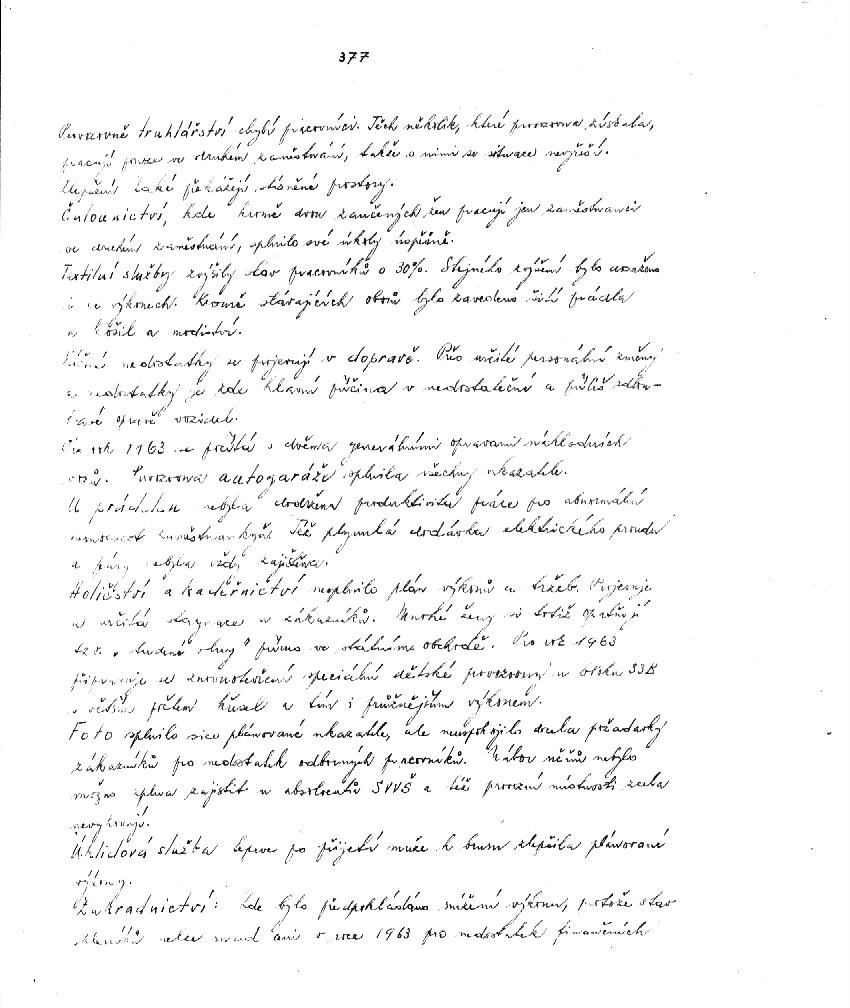 377
Provozovně truhlářství chybí pracovníci. Těch několik, které provozovna získala,
pracují pouze ve druhém zaměstnání, takže s nimi se situace nevyřeší.
Zlepšení také překážejí stísněné prostory.
Čalounictví, kde kromě dvou zaučených žen pracují jen zaměstnanci
ve druhém zaměstnání, splnilo své úkoly úspěšně.
Textilní služby zvýšily stav pracovníků o 30%. Stejného zvýšení bylo dosaženo
i ve výkonech. Kromě stávajících oborů bylo zavedeno šití prádla
a košil a modiství.
Vážné nedostatky se projevují v dopravě. Přes určité personální změny
a nedostatky je zde hlavní příčina v nedostatečné a příliš zdlou-
havé opravě vozidel.
Pro rok 1963 se počítá s dvěma generálními opravami nákladních
vozů. Provozovna autogaráže splnila všechny ukazatele.
U prádelen nebyla dodržena produktivita práce pro abnormální
nemocnost zaměstnankyň. Též plynulá dodávka elektrického proudu
a páry nebyla vždy zajištěna.
Holičství a kadeřnictví nesplnilo plán výkonů a tržeb. Projevuje
se určitá stagnace u zákazníků. Mnohé ženy si totiž opatřují
tzv. „studené vlny" přímo ve státním obchodě. Pro rok 1963
připravuje se znovuotevření speciální dětské provozovny u
s větším počtem křesel a tím i průčnějším výkonem.
Foto splnilo sice plánované ukazatele, ale neuspokojilo zcela požadavky
zákazníků pro nedostatek odborných pracovníků. Nábor učňů nebylo
možno zplna zajistit u absolventů SVVŠ a též provozní místnosti zcela
nevyhovují.
Úklidová služba teprve po přijetí muže k brusu zlepšila plánované
výkony.
Zahradnictví: Zde bylo předpokládáno snížení výkonu, protože stav
skleníků nelze snad ani v roce 1963 pro nedostatek finančních